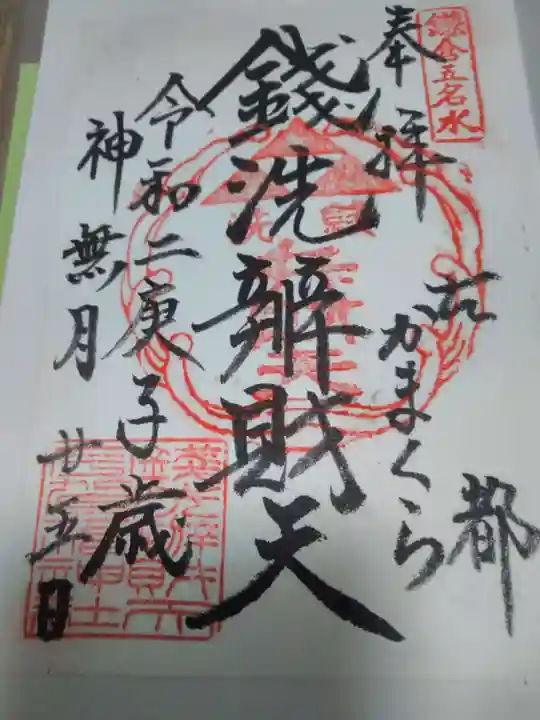 鎌倉五名水
奉拝
古都
かまくら
銭洗辨財天
令和二庚子歳
神無月
廿五日